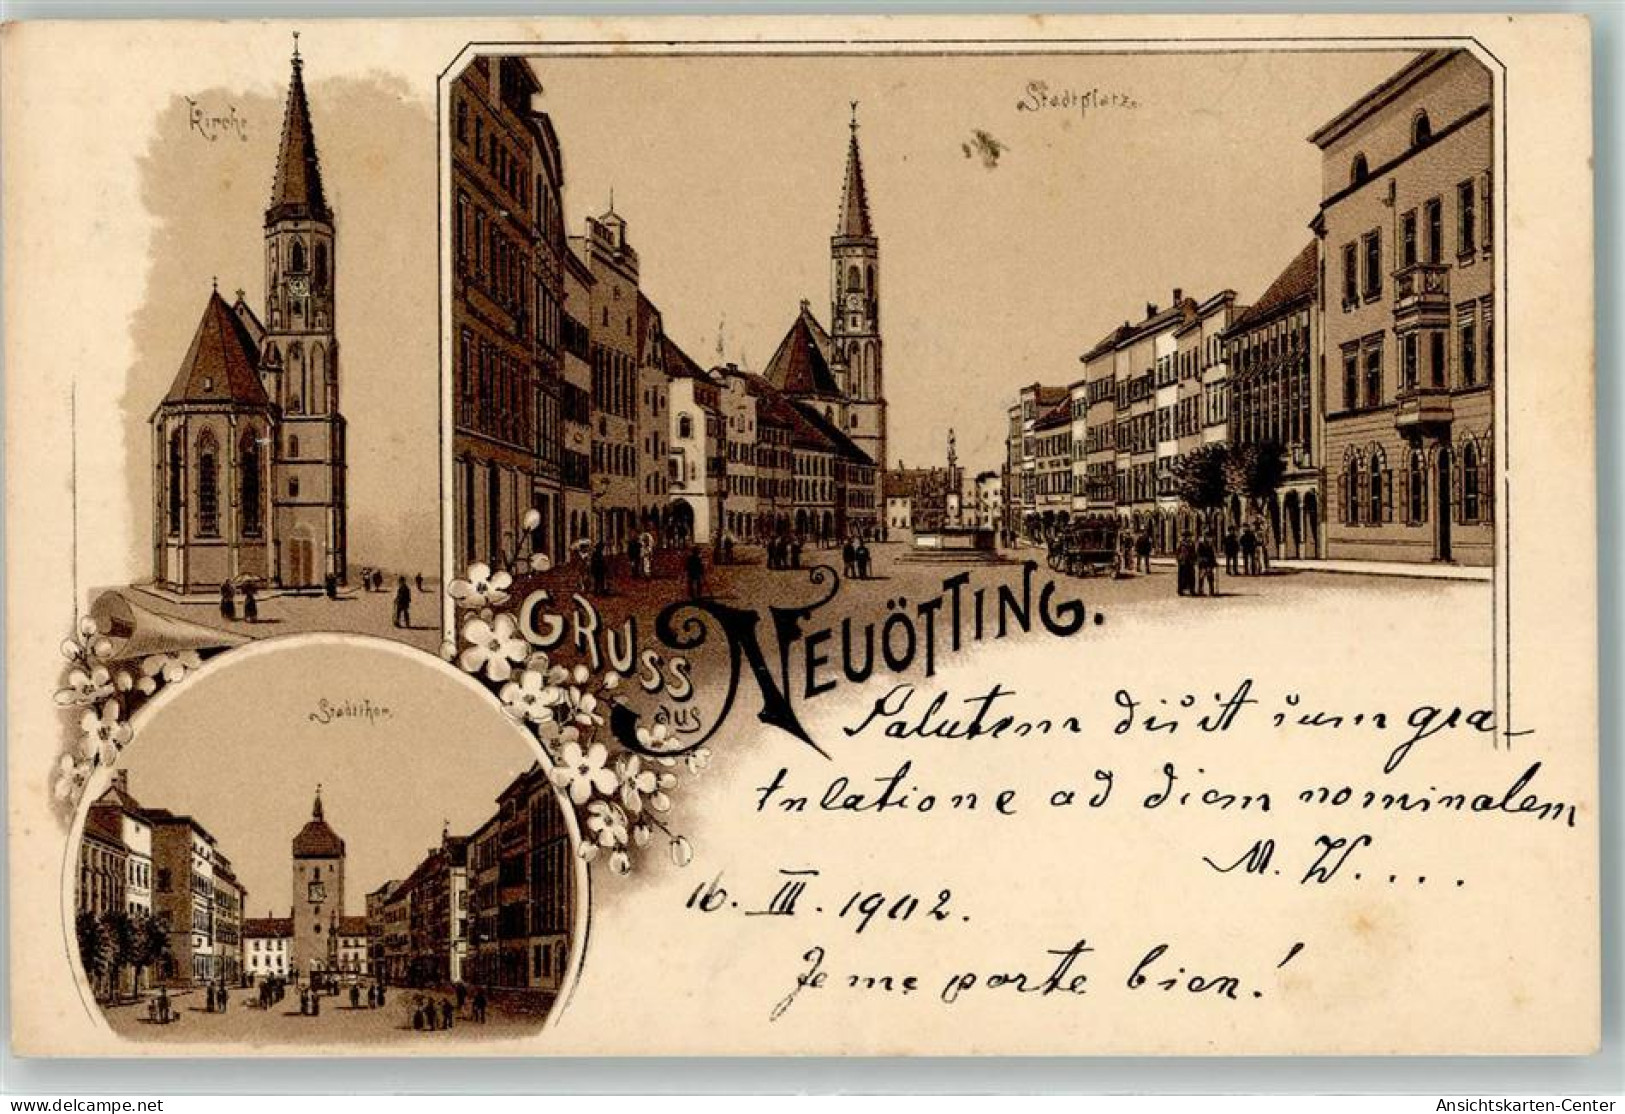 Kirche
Stadtplatz.
GRUSS
aus
NEUÖTTING.
Stadtthor.
Salutem dicit cum gra-
tulatione ad diem nominalem
M. W....
16. III. 1902.
Je me porte bien!
www.delcampe.net
Ansichtskarten-Center